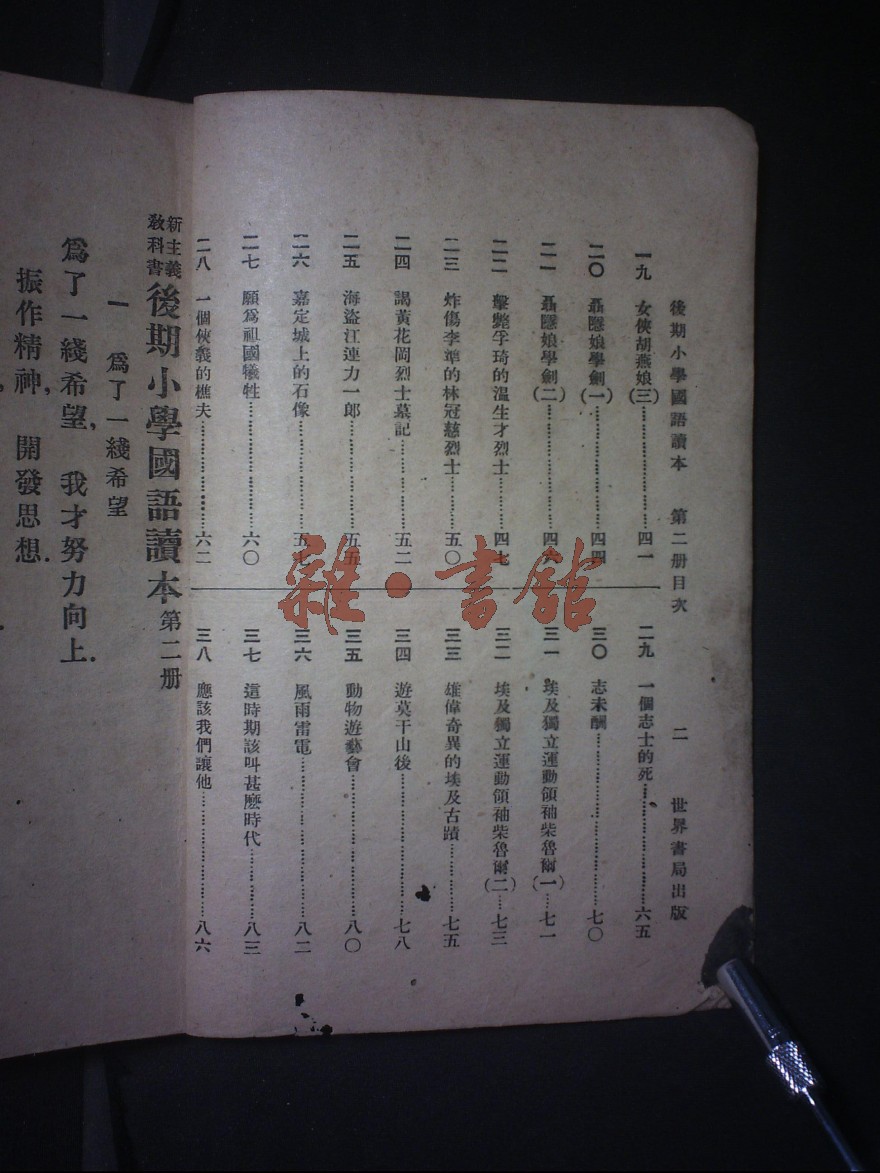 後期小學國語讀本 第二册目次 二 世界書局出版
一九 女俠胡燕娘(三)……四一
二〇 聶隱娘學劍(一)……四四
二一 聶隱娘學劍(二)……四六
二二 擊斃孚琦的溫生才烈士……四七
二三 炸傷李準的林冠慈烈士……五〇
二四 謁黃花岡烈士墓記……五二
二五 海盜江連力一郎……五五
二六 嘉定城上的石像……五七
二七 願爲祖國犧牲……六〇
二八 一個俠義的樵夫……六二
二九 一個志士的死……六五
三〇 志未酬……七〇
三一 埃及獨立運動領袖柴魯爾(一)……七一
三二 埃及獨立運動領袖柴魯爾(二)……七三
三三 雄偉奇異的埃及古蹟……七五
三四 遊莫干山後……七八
三五 動物遊藝會……八〇
三六 風雨雷電……八二
三七 這時期該叫甚麽時代……八三
三八 應該我們讓他……八六
新主義教科書 後期小學國語讀本 第二册
一 爲了一綫希望
爲了一綫希望，我才努力向上．
振作精神，開發思想．
雜·書館